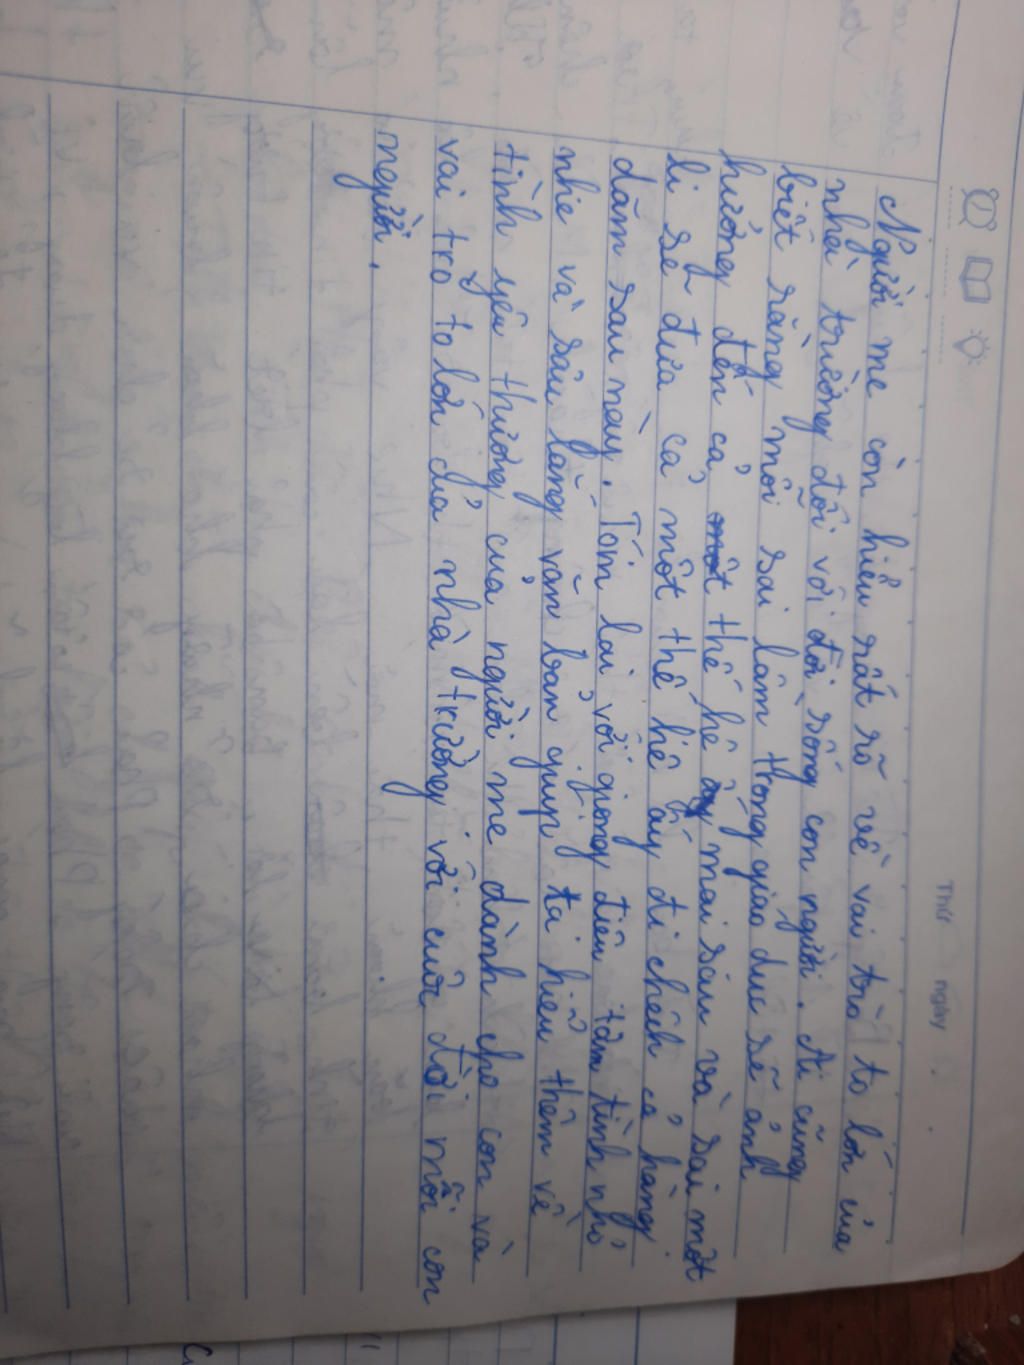 Thứ ngày
Người mẹ còn hiểu rất rõ về vai trò to lớn của
nhà trường đối với đời sống con người. Ai cũng
biết rằng mỗi sai lầm trong giáo dục sẽ ảnh
hưởng đến cả một thế hệ mai sau và sai một
li sẽ đưa cả một thế hệ ấy đi chệch cả hàng
dặm sau này. Tóm lại với giọng điệu tâm tình nhỏ
nhẹ và sâu lắng văn bản giúp ta hiểu thêm về
tình yêu thương của người mẹ dành cho con và
vai trò to lớn của nhà trường với cuộc đời mỗi con
người.